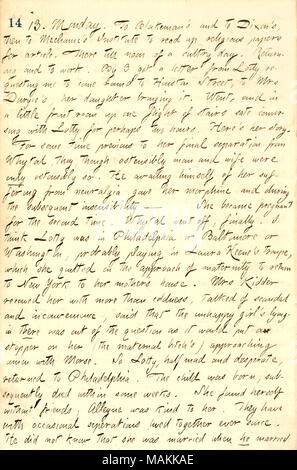 14 13. Monday. To Blakeman's and to Dixon's,
then to Mechanic's Institute to read up religious papers
for article. There till noon of a sultry day. Return
ing and to work. By 3 got a letter from Lotty re-
questing me to come round to Houston Street, to Mrs
daughter bringing it. Went, and in
a little front room up one flight of stairs sate conver
sing with Lotty for perhaps two hours. Here's her story.
For some time previous to her final separation from
Whytal they though ostensibly man and wife were
only ostensibly so. He availing himself of her suf-
fering from neuralgia gave her morphine and during
the subsequent insensibility She became pregnant
for the second time. Whytal went off, finally. I
think Lotty was in Philadelphia or Baltimore or
Washington, probably playing in Laura Keene's troupe,
which she quitted on the approach of maternity to return
to New York to her mother's house. Mrs Kidder
received her with more than coldness, talked of scandal
and inconvenience, said that the unhappy girl's lying-
in there was out of the question as it would put a
stopper on her (the maternal bitch's) approaching
union with Morse. So Lotty, half mad and desperate,
returned to Philadelphia. The child was born, sub-
sequently died within some weeks. She found herself
without friends; Alleyne was kind to her. They have
with occasional seperations lived together ever since.
He did not know that she was married when he married
alamy
Image ID: MAKKAE
www.alamy.com